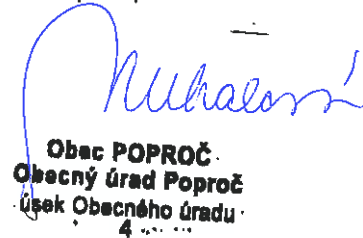 Obec POPROČ
Obecný úrad Poproč
úsek Obecného úradu
4